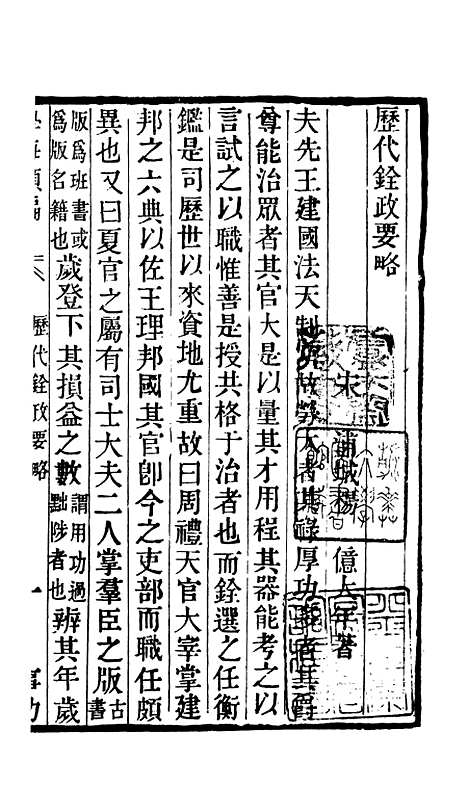 歷代銓政要略
宋 浦城楊 億大年著
夫先王建國法天制 故 大者其祿厚功 者其爵
尊能治眾者其官大是以量其才用程其器能考之以
言試之以職惟善是授共格于治者也而銓選之任衡
鑑是司歷世以來資地尤重故曰周禮天官大宰掌建
邦之六典以佐王理邦國其官卽今之吏部而職任頗
異也又曰夏官之屬有司士大夫二人掌羣臣之版古書
版爲班書或爲版名籍也歲登下其損益之數謂用功過黜陟者也辨其年歲
學海類編 歷代銓政要略 一